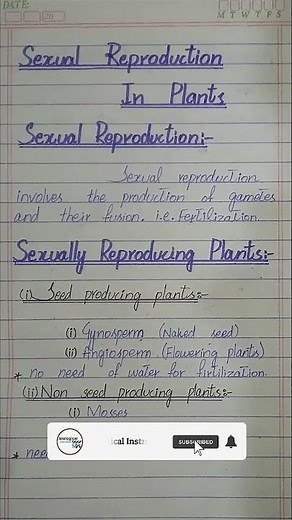 DATE:
M T W T F S
Sexual Reproduction
In Plants
Sexual Reproduction:-
Sexual reproduction
involves the production of gametes
and their fusion. i.e. Fertilization.
Sexually Reproducing Plants:-
(i) Seed producing plants:-
(i) Gynosperm (Naked seed)
(ii) Angiosperm (Flowering plants)
* no need of water for firtilization.
(ii) Non seed producing plants:-
(i) Mosses
ical Inst SUBSCRIBED
* nee